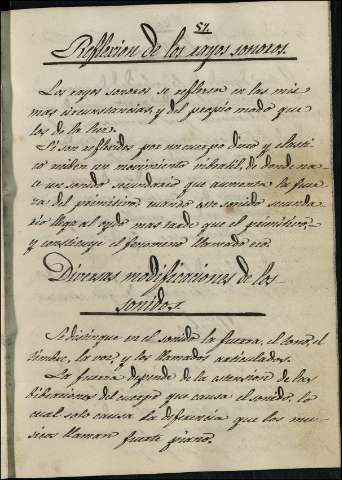 57.
Reflexion de los rayos sonoros.
Los rayos sonoros se reflexan en las mis
mas circunstancias, y del propio modo que
los de la luz.
Si son reflejados por un cuerpo duro y elasti
co reciben un movimiento vibratil, de donde na
ce un sonido secundario que aumenta la fuer
za del primitivo cuando este sonido secunda
rio llega al oydo mas tarde que el primitivo
y constituye el fenomeno llamado eco
Diversas modificaciones de los
sonidos.
Se distingue en el sonido la fuerza, el tono, el
timbre, la voz, y los llamados articulados.
La fuerza depende de la estension de las
bibraciones del cuerpo que causa el sonido, lo
cual solo causa la diferencia que los mu
sicos llaman fuerte piano.